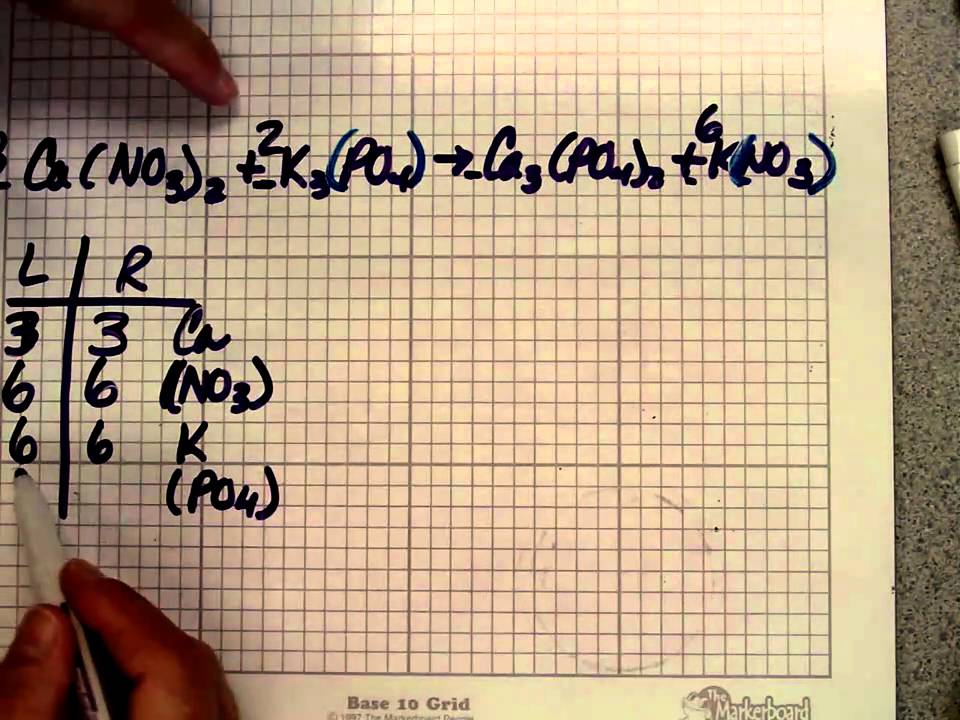 3 Ca(NO₃)₂ + 2 K₃(PO₄) → Ca₃(PO₄)₂ + 6 K(NO₃)
L R
3 3 Ca
6 6 (NO₃)
6 6 K
(PO₄)
Base 10 Grid
© 1997 The Markerboard People
The Markerboard